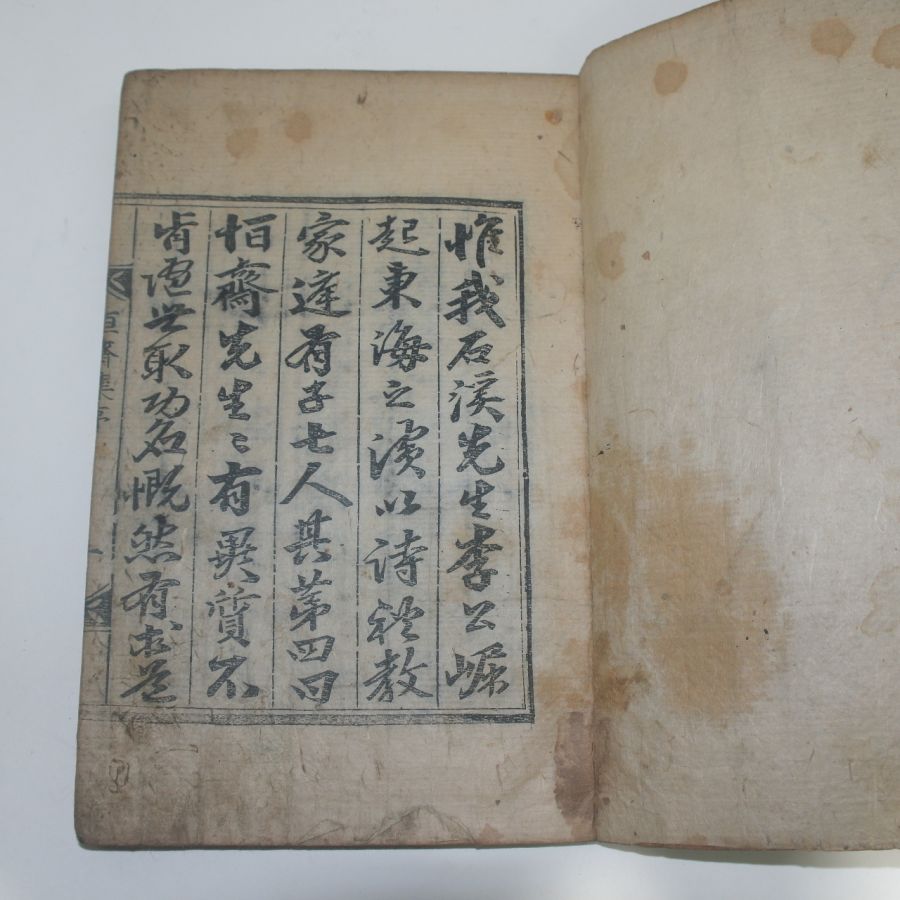 惟我石溪先生李公崛
起東海之濱以詩禮教
家達有子七人其苐四曰
恒齋先生〻有異質不
肯随世取功名慨然有求道
恒齋集序